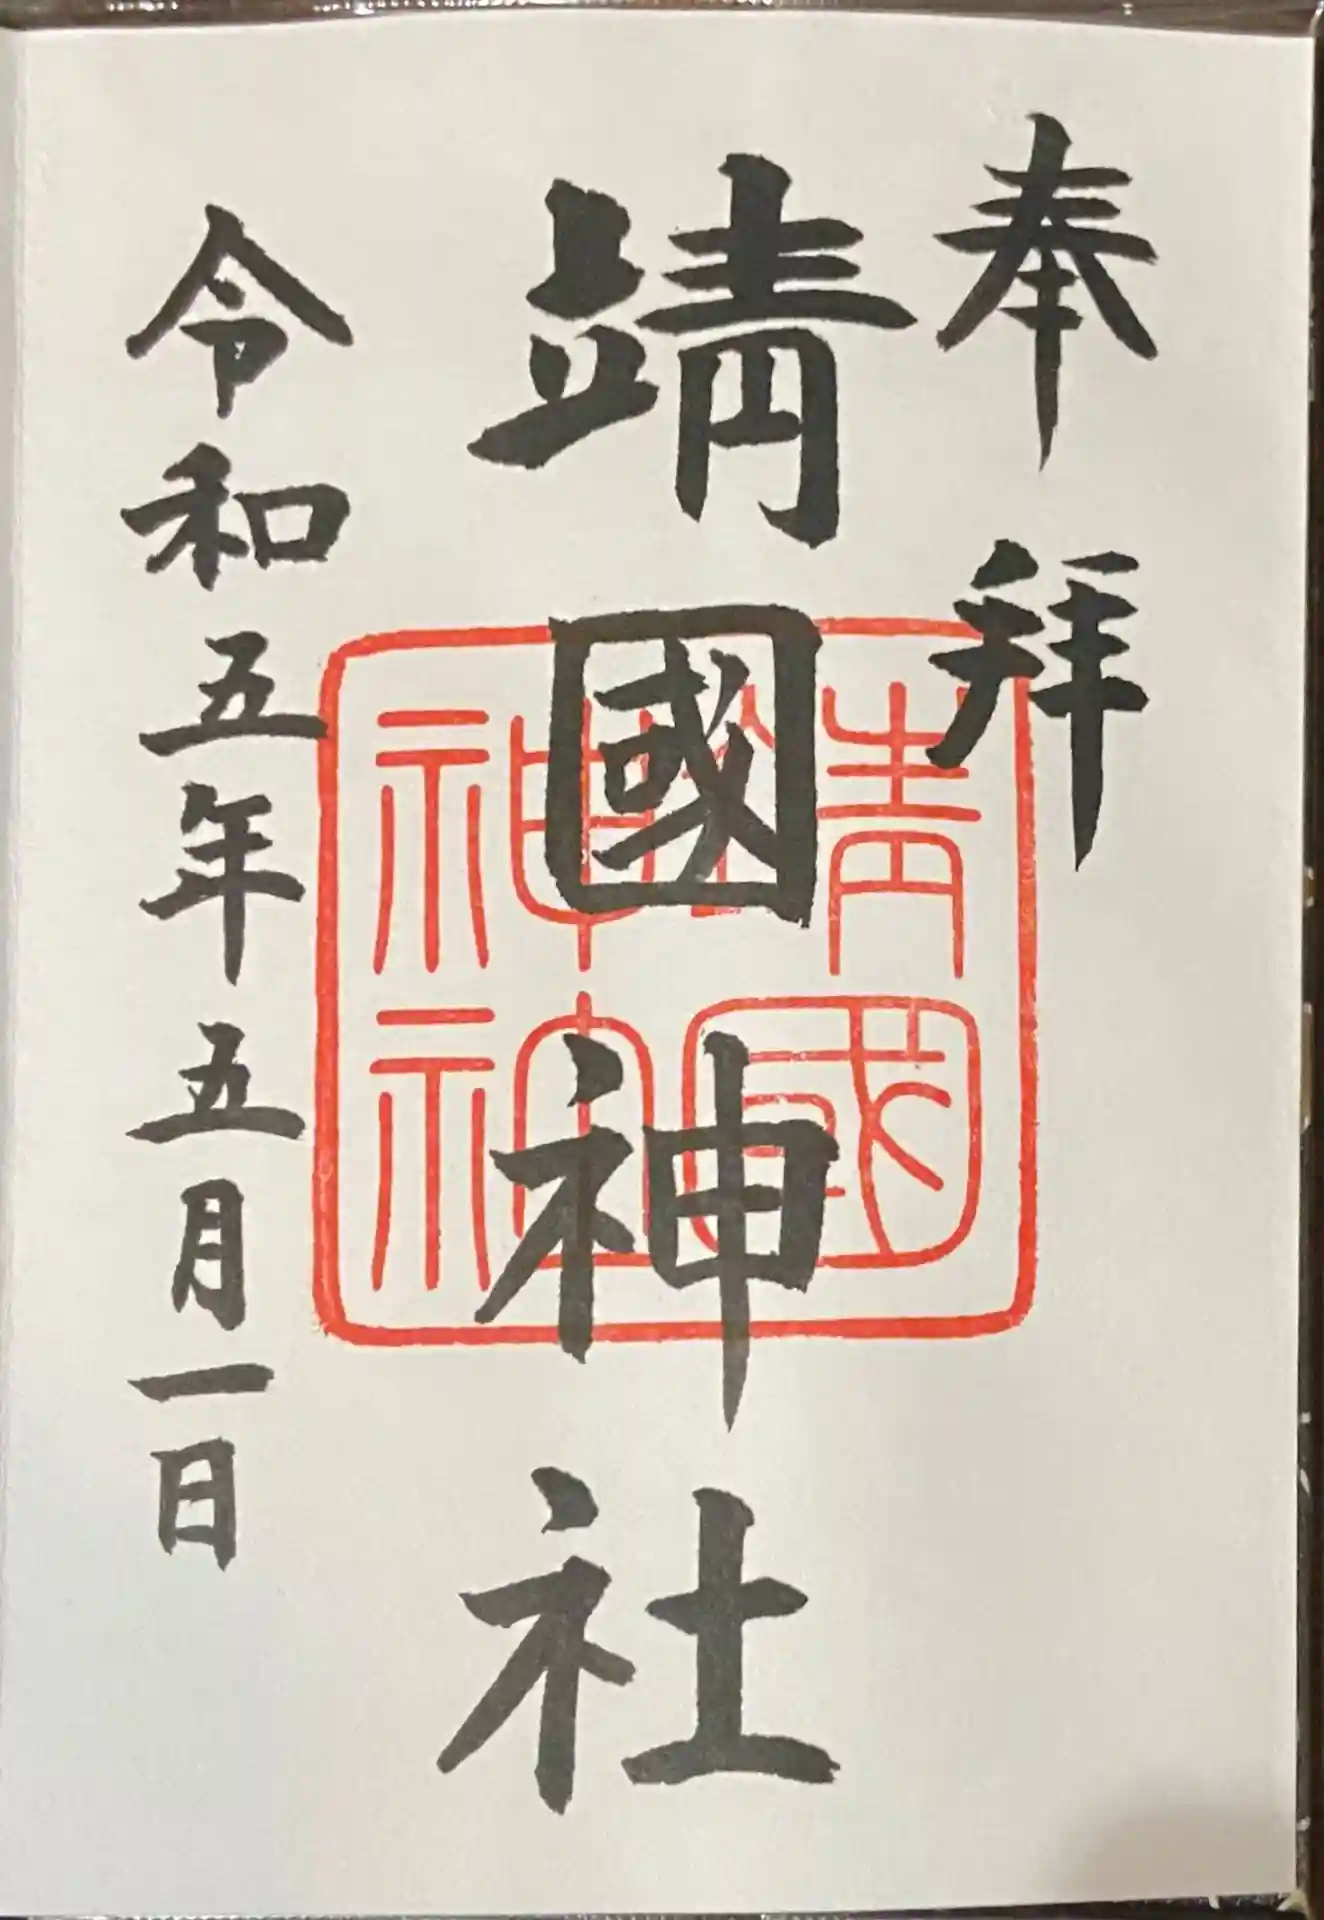 奉拝
靖國神社
令和五年五月一日
靖國
神社